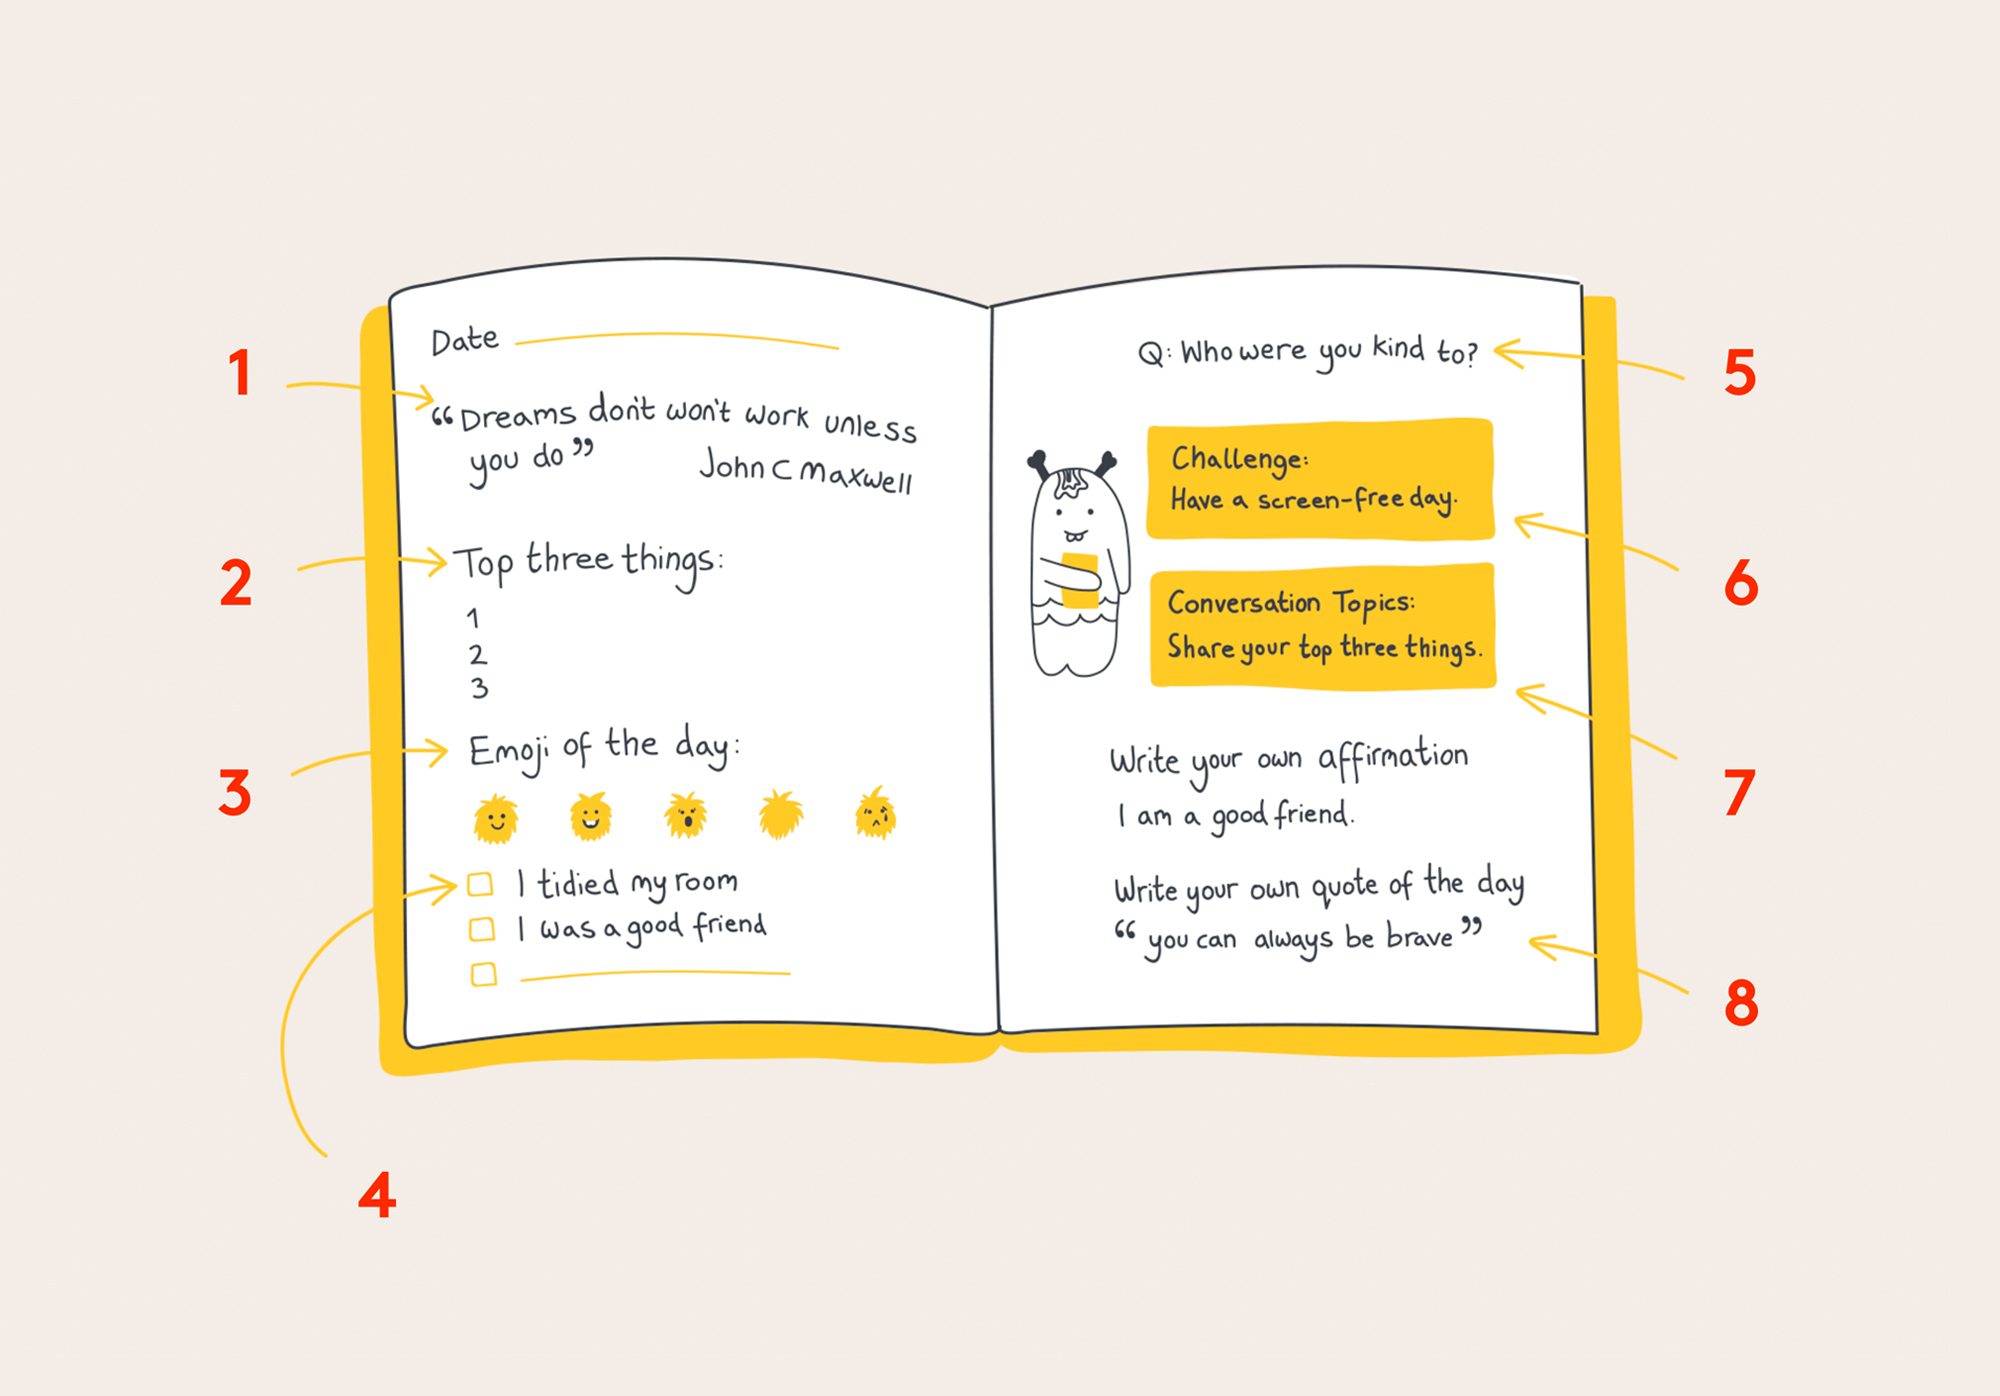 1
2
3
4
Date
“Dreams don't won't work unless
you do”
John C Maxwell
Top three things:
1
2
3
Emoji of the day:
I tidied my room
I was a good friend
Q: Who were you kind to?
Challenge:
Have a screen-free day.
Conversation Topics:
Share your top three things.
Write your own affirmation
I am a good friend.
Write your own quote of the day
“you can always be brave”
5
6
7
8